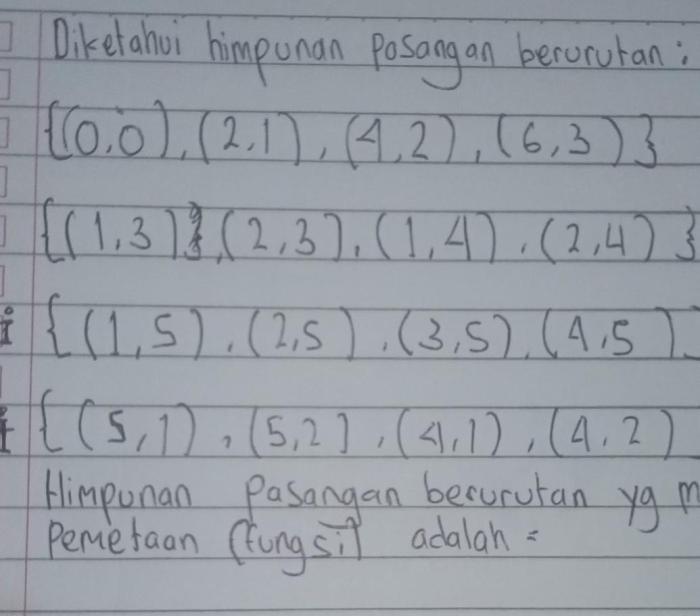 Diketahui himpunan pasangan berurutan :
{(0,0), (2,1), (4,2), (6,3)}
{(1,3), (2,3), (1,4), (2,4)}
{(1,5), (2,5), (3,5), (4,5)
{(5,1), (5,2), (4,1), (4,2)
Himpunan Pasangan berurutan yg m
Pemetaan (fungsi) adalah =